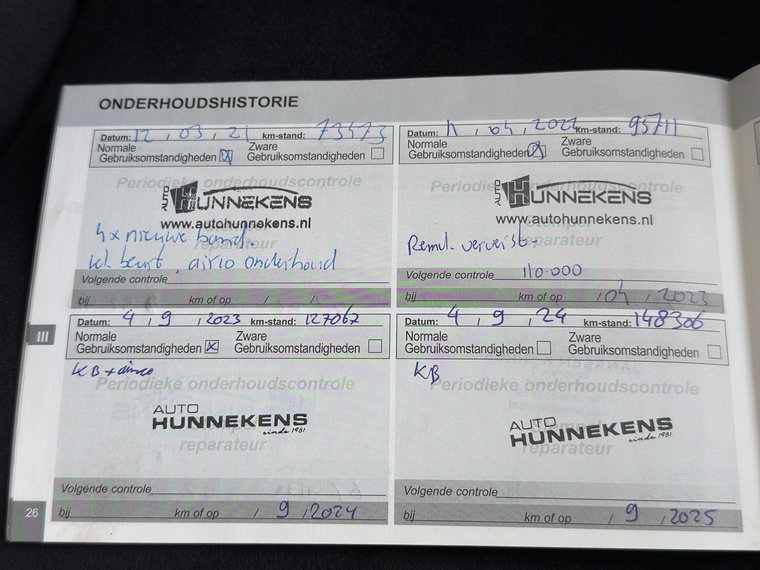 ONDERHOUDSHISTORIE
Datum: 12 / 03 / 21 km-stand: 73473
Normale Gebruiksomstandigheden
Zware Gebruiksomstandigheden
Periodieke onderhoudscontrole
HUNNEKENS
www.autohunnekens.nl
reparateur
4x nieuwe band.
kl. beurt, airco onderhoud
Volgende controle
bij km of op / /
Datum: 11 / 04 / 2022 km-stand: 95711
Normale Gebruiksomstandigheden
Zware Gebruiksomstandigheden
Periodieke onderhoudscontrole
HUNNEKENS
www.autohunnekens.nl
Stempel
reparateur
Remvl. ververst.
Volgende controle 110.000
bij km of op / 04 / 2023
III
Datum: 4 / 9 / 2023 km-stand: 127067
Normale Gebruiksomstandigheden
Zware Gebruiksomstandigheden
KB + airco
Periodieke onderhoudscontrole
AUTO
HUNNEKENS
sinds 1981
reparateur
Volgende controle
bij km of op / 9 / 2024
Datum: 4 / 9 / 24 km-stand: 148306
Normale Gebruiksomstandigheden
Zware Gebruiksomstandigheden
KB
Periodieke onderhoudscontrole
AUTO
HUNNEKENS
sinds 1981
reparateur
Volgende controle
bij km of op / 9 / 2025
26